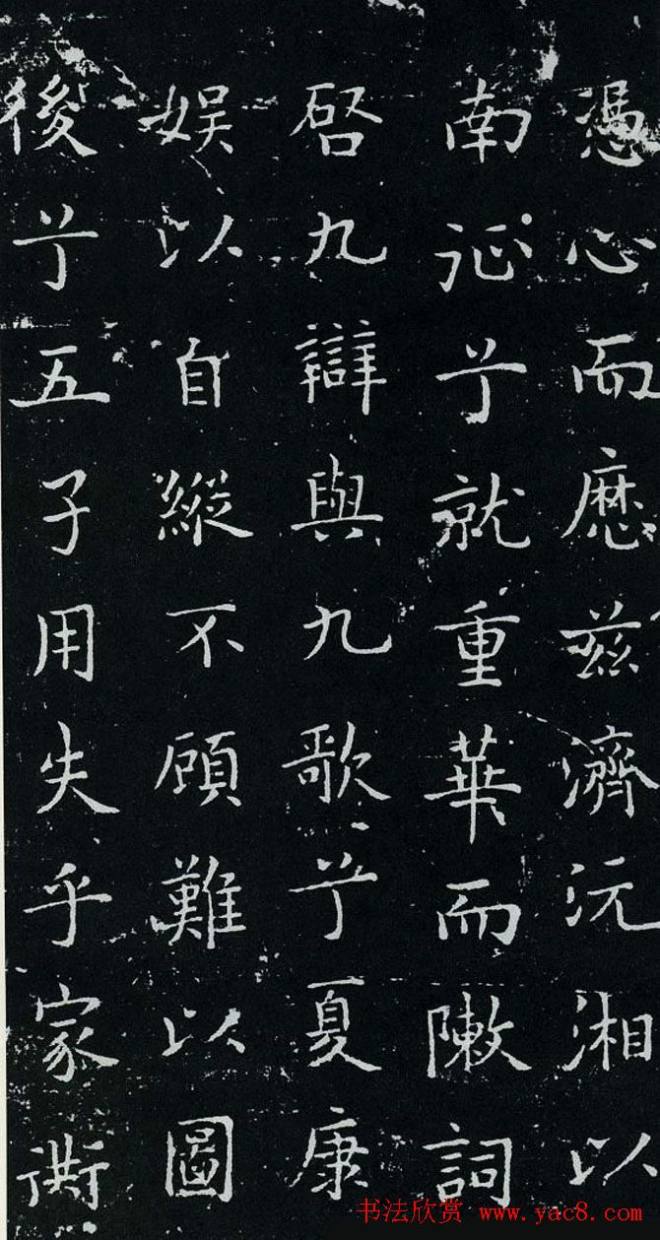 憑心而歷茲濟沅湘以
南征兮就重華而敶詞
啓九辯與九歌兮夏康
娛以自縱不顧難以圖
後兮五子用失乎家衖
书法欣赏 www.yac8.com